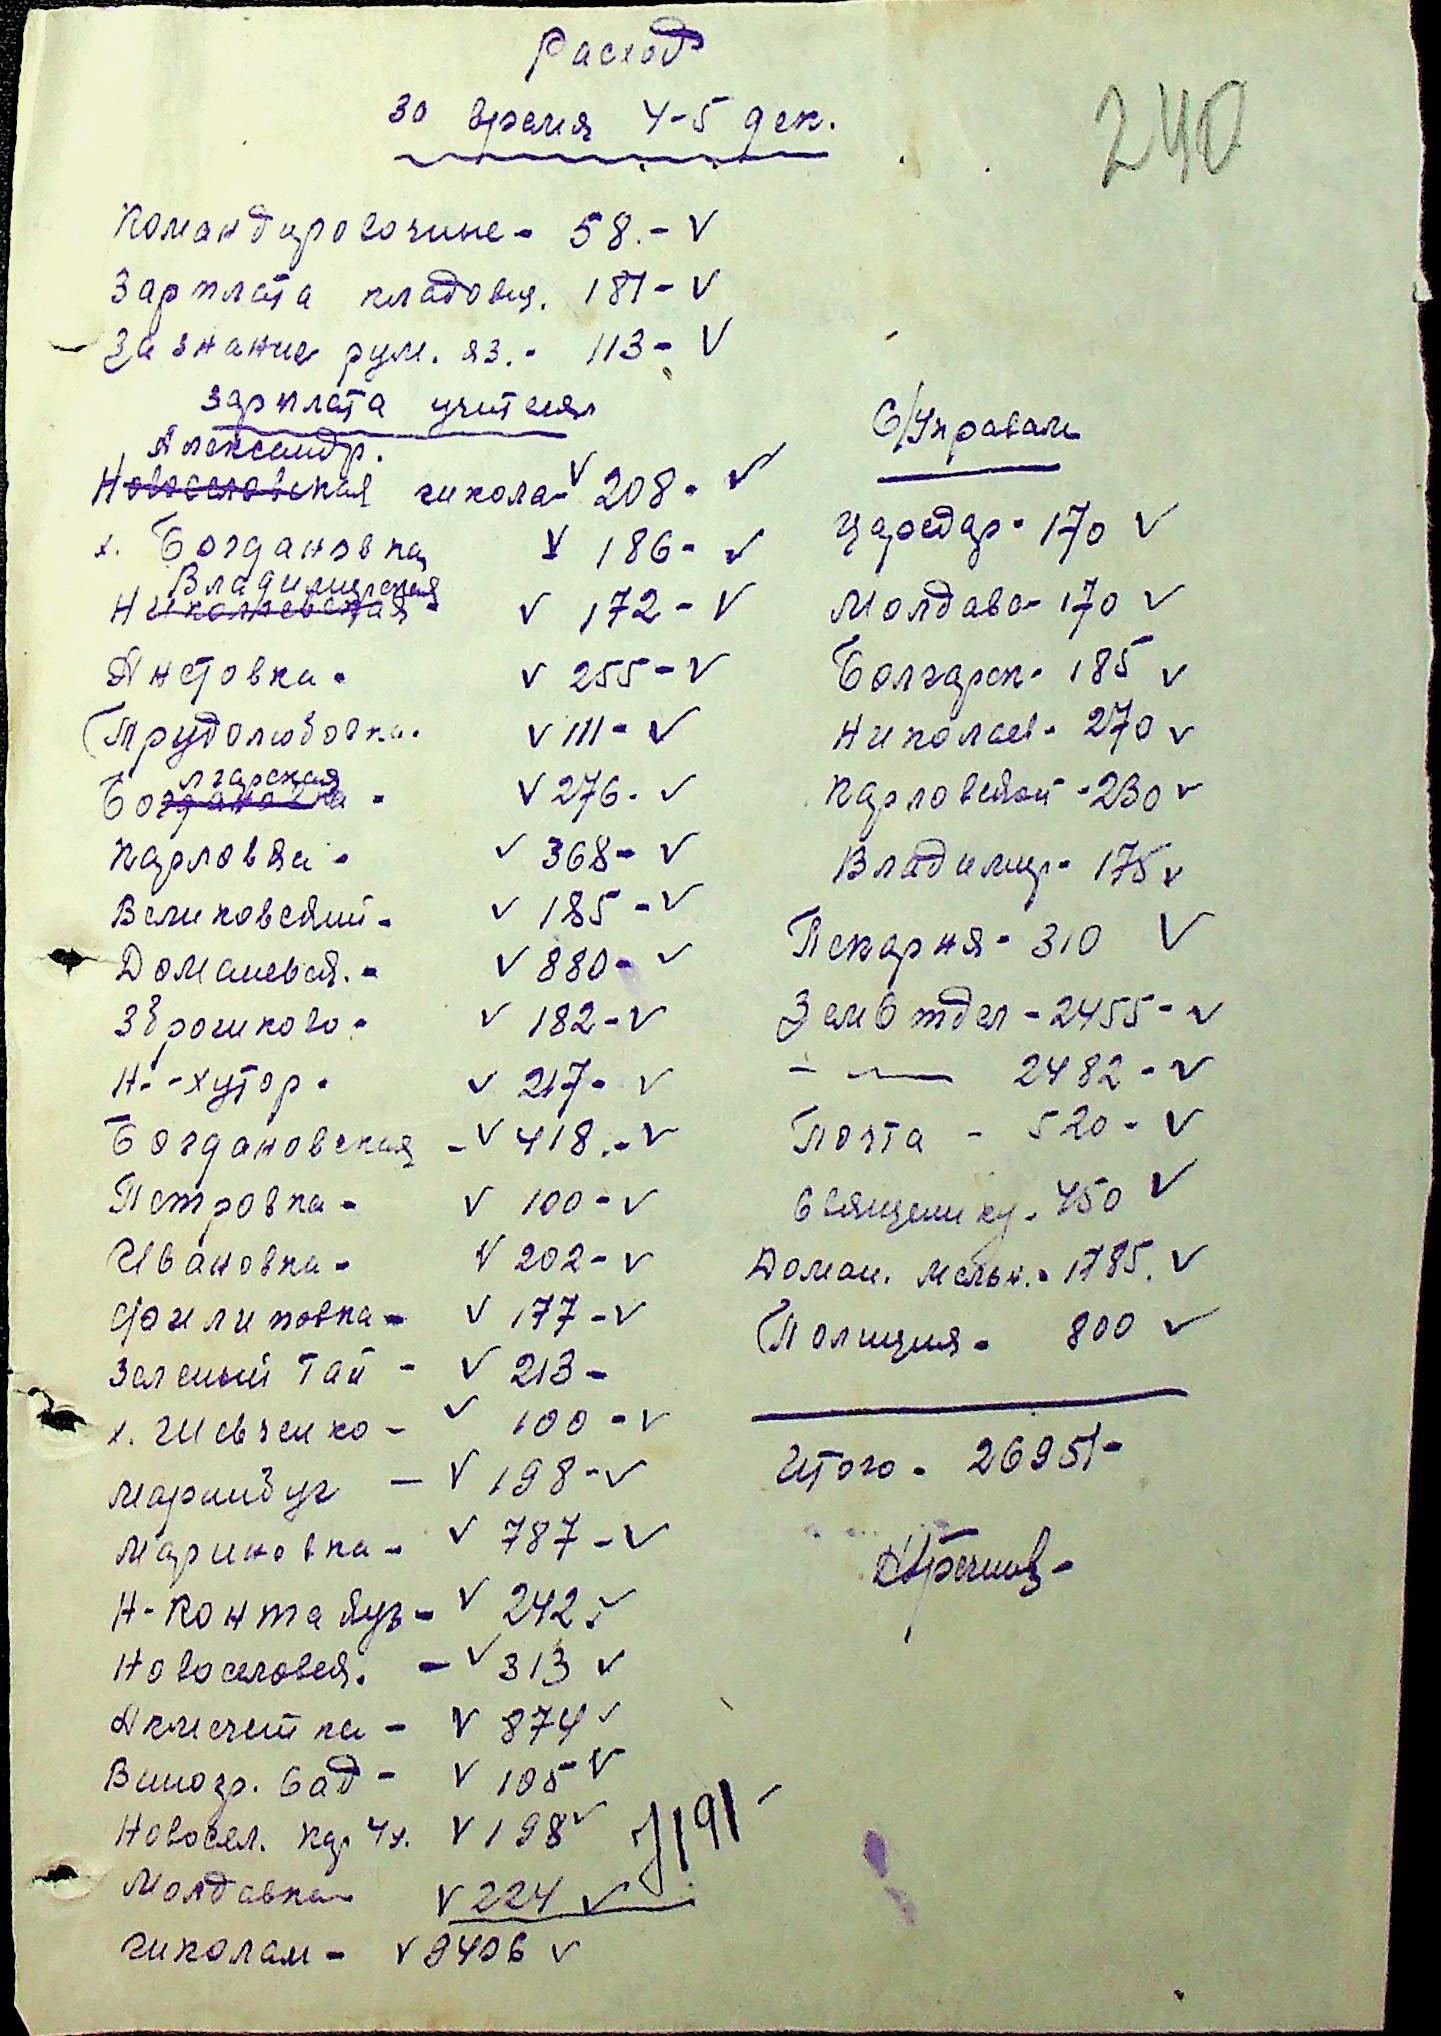 Расход
за время 4-5 дек.
240
Командировочные - 58.- V
Зарплата кладовщ. 181 - V
За знание рум. яз. - 113 - V
Зарплата учителям
Александр.
Новоселовская школа - V 208 - V
х. Богдановка V 186 - V
Владимирская
Николаевская V 172 - V
Анетовка - V 255 - V
Трудолюбовка - V 111 - V
лгарская
Богдановка - V 276 - V
Карловка - V 368 - V
Великовский - V 185 - V
Доманевск. - V 880 - V
Зброшково - V 182 - V
Н--хутор - V 217 - V
Богдановская - V 418.- V
Петровка - V 100 - V
Ивановка - V 202 - V
Филиповка - V 177 - V
Зеленый Гай - V 213 -
х. Шевченко - V 100 - V
Маринбург - V 198 - V
Мариновка - V 787 - V
Н-Контакуз - V 242 V
Новоселовск. - V 313 V
Акмечетка - V 874 V
Виногр. Сад - V 105 V
Новосел. V 198 V
7191-
Молдавка V 224 V
школам - V 9406 V
С/Управам
Царедар - 170 V
Молдавс - 170 V
Болгарск - 185 V
Николаев - 270 V
Карловской - 230 V
Владимир - 175 V
Пекарня - 310 V
ЗемОтдел - 2455 - V
- — 2482 - V
Почта - 520 - V
Священику - 450 V
Доман. мельн. - 1785. V
Полиция - 800 V
Итого - 26951-